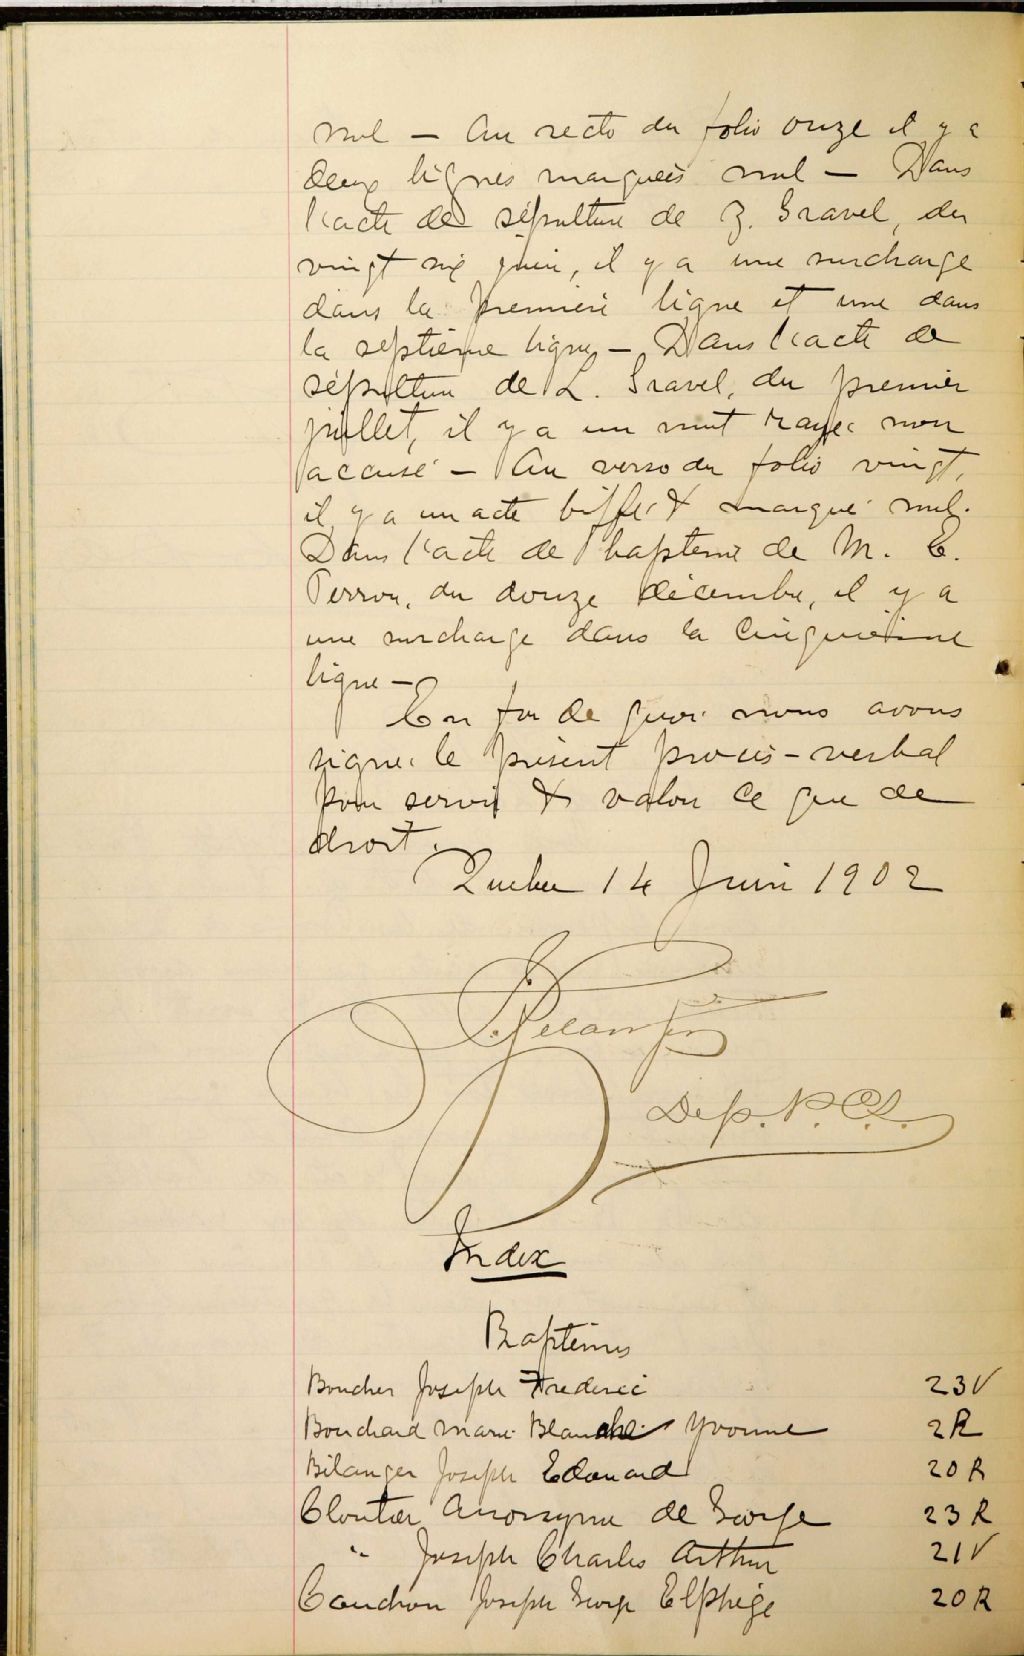 nul — Au recto du folio onze il y a
deux lignes marquées nul — Dans
l'acte de sépulture de Z. Gravel, du
vingt six juin, il y a une surcharge
dans la première ligne et une dans
la septième ligne — Dans l'acte de
sépulture de L. Gravel, du premier
juillet, il y a un mot rayé non
accusé — Au verso du folio vingt,
il y a un acte biffé & marqué nul.
Dans l'acte de baptême de M. E.
Perron, du douze décembre, il y a
une surcharge dans la cinquième
ligne —
En foi de quoi nous avons
signé le présent procès-verbal
pour servir & valoir ce que de
droit.
Québec 14 Juin 1902
Dep. P. C. S.
Index
Baptêmes
Boucher Joseph Frederic 23V
Bouchard Marie Blanche Yvonne 2R
Bélanger Joseph Edouard 20R
Cloutier Anonyme de George 23R
" Joseph Charles Arthur 21V
Cauchon Joseph George Elphège 20R